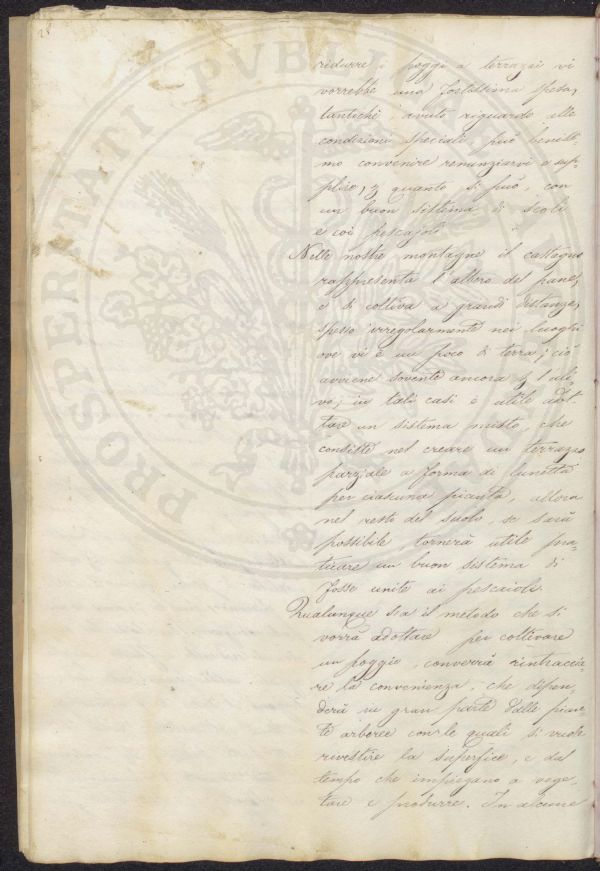 28
ridurre i poggi a terrazzi vi
vorrebbe una fortissima spesa,
tantiché, avuto riguardo alle
condizioni speciali, può benissi-
mo convenire renunziarvi e sup-
plire, quanto si può, con
un buon sistema di scoli
e coi pescajoli
Nelle nostre montagne il castagno
rappresenta l'albero del pane,
e si coltiva a grandi distanze,
spesso irregolarmente nei luoghi
ove vi è un poco di terra; ciò
avviene sovente ancora l'uli-
vo; in tali casi è utile adot
tare un sistema misto, che
consiste nel creare un terrazzo
parziale a forma di lunetta
per ciascuna pianta, allora
nel resto del suolo, se sarà
possibile tornerà utile pra-
ticare un buon sistema di
fosse unite ai pescaioli.
Qualunque sia il metodo che si
vorrà adottare per coltivare
un poggio, converrà rintraccia-
re la convenienza, che dipen-
derà in gran parte dalle pian-
te arboree con le quali si vuole
rivestire la superfice, e dal
tempo che impiegano a vege-
tare e produrre. In alcune
PROSPERITATI PVBLICAE